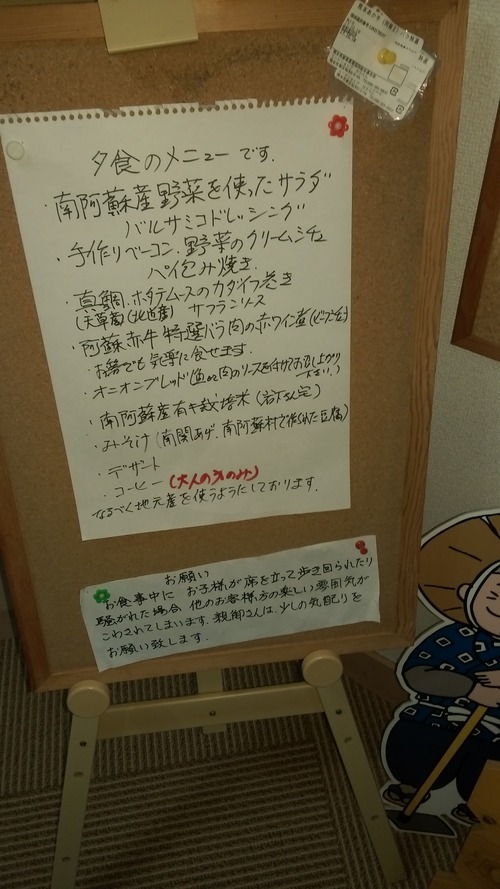 夕食のメニューです.
・南阿蘇産野菜を使ったサラダ
バルサミコドレッシング
・手作りベーコン.野菜のクリームシチュ
パイ包み焼き.
・真鯛.ホタテムースのカダイフ巻き
(天草産)(北海道産) サフランソース
・阿蘇赤牛 特選バラ肉の赤ワイン煮(ビーフシチュー)
お箸でも気楽に食せます.
・オニオンブレッド(魚or肉のソースを付けてお召し上がり下さい.)
・南阿蘇産有キ栽培米(岩下さん宅)
・みそ汁(南関あげ.南阿蘇村で作られた豆腐)
・デザート
・コーヒー(大人の方のみ)
なるべく地元産を使うようにしております.
お願い
お食事中に お子様が席を立って歩き回られたり
騒がれた場合 他のお客様方の楽しい雰囲気が
こわされてしまいます.親御さんは.少しの気配りを
お願い致します.